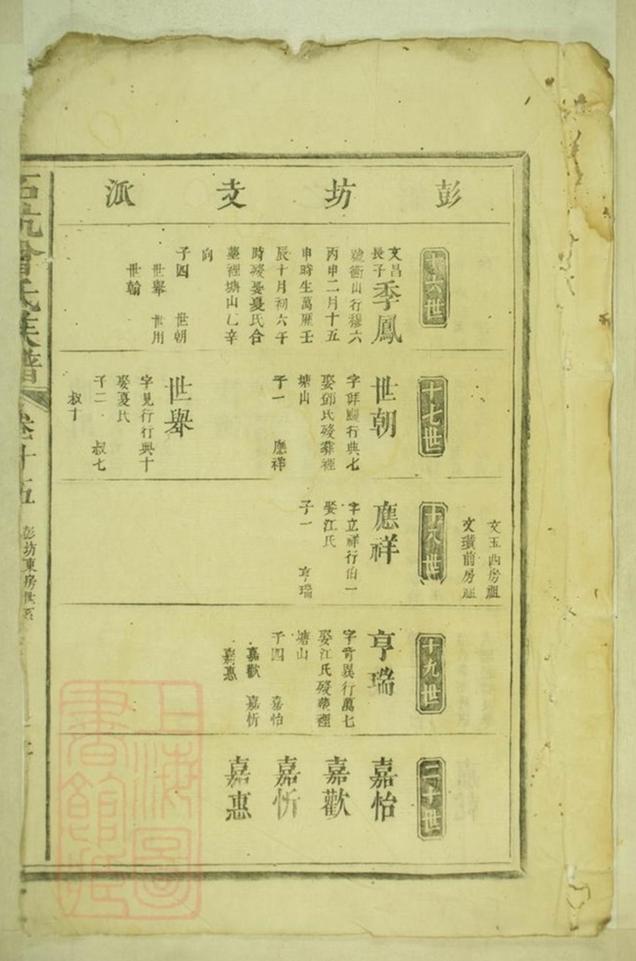 彭坊支派
文玉西房祖
文璜前房祖
十六世
文昌
長子
季鳳
號衝山行穆六
丙申二月十五
申時生萬厯壬
辰十月初六午
時歿娶憂氏合
塟裡塘山乙辛
向
子四 世朝
世舉 世用
世翰
十七世
世朝
行典七
娶鄧氏歿塟裡
塘山
子一 應祥
世舉
字見行行典十
娶憂氏
子二 叔七
叔十
十八世
應祥
字立祥行伯一
娶江氏
子一 亨瑞
十九世
亨瑞
字肯異行萬七
娶江氏歿塟裡
塘山
子四 嘉怡
嘉歡 嘉忻
嘉惠
二十世
嘉怡
嘉歡
嘉忻
嘉惠
石坑曾氏族譜
卷十五
彭坊東房世系
上海圖
書館藏